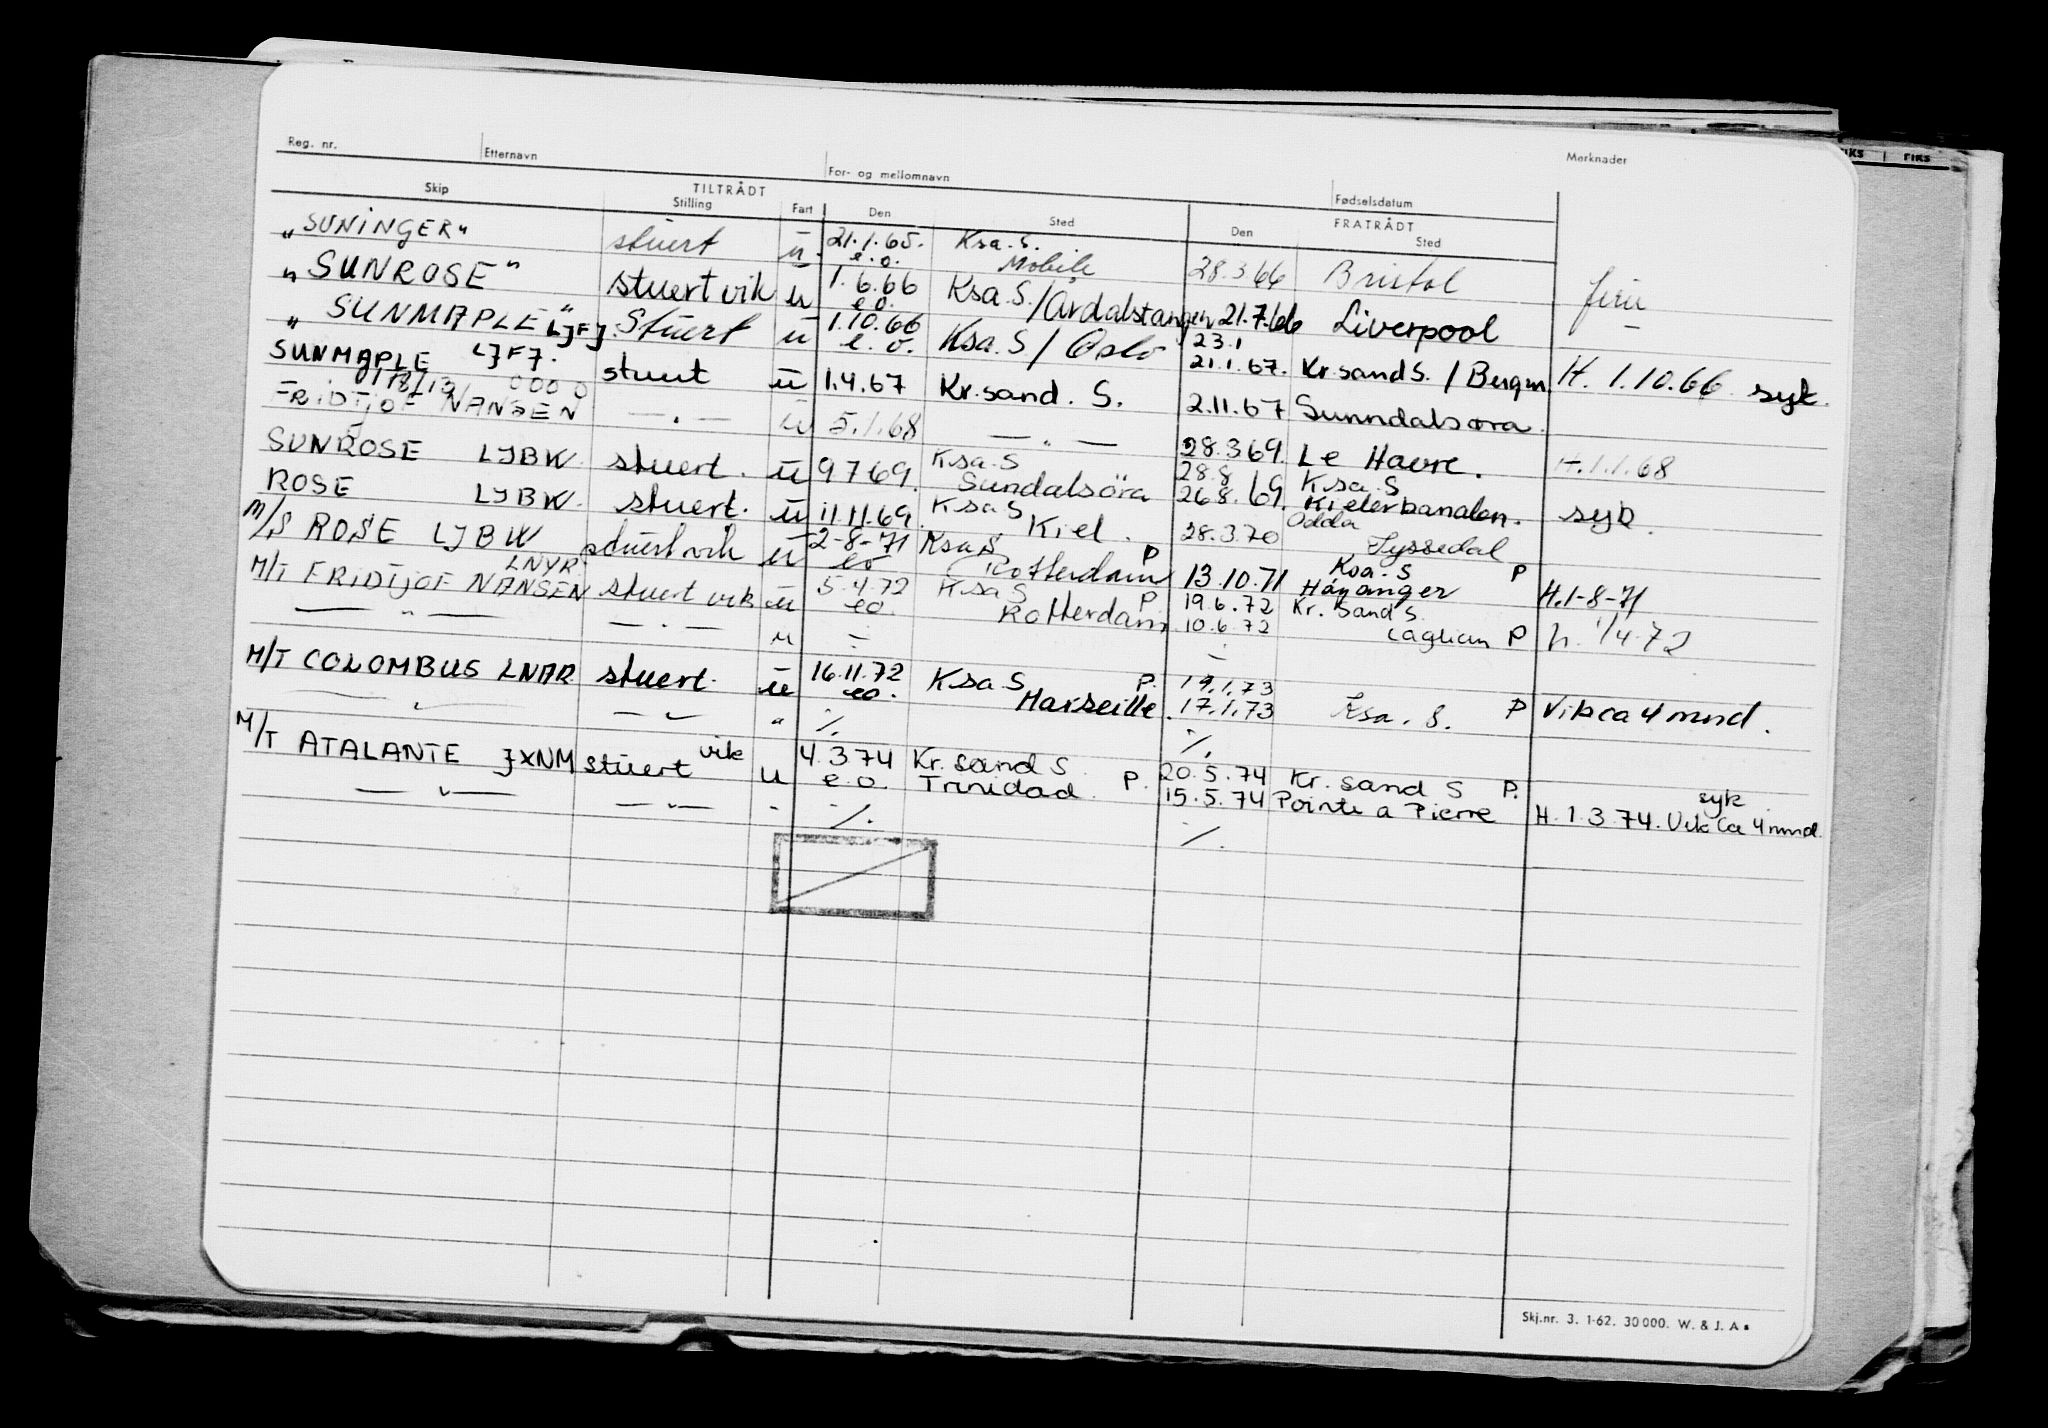 Reg. nr. Etternavn For- og mellomnavn Fødselsdatum Merknader
Skip TILTRÅDT Stilling Fart Den Sted FRATRÅDT Den Sted
"SUNINGER" stuert u 21.1.65. e.o. Ksa. S. Mobile 28.3.66 Bristol
"SUNROSE" stuert vik u 1.6.66 e.o. Ksa. S./Årdalstangen 21.7.66 Liverpool
"SUNMAPLE" LJFJ. Stuert u 1.10.66 e.o. Ksa. S / Oslo 23.1 21.1.67. Kr.sand S. / Bergen H. 1.10.66 syk.
SUNMAPLE LJFJ. stuert u 1.4.67 Kr.sand. S. 2.11.67 Sunndalsøra.
FRIDTJOF NANSEN — . — u 5.1.68 — " — 28.3.69 Le Havre. H.1.1.68
SUNROSE LJBW. stuert. u 9 7 69. Ksa. S Sundalsöra 28.8 26.8.69 Ksa. S Kielerkanalen. syk.
ROSE LJBW. stuert. u 11.11.69. Ksa S Kiel. 28.3.70 Odda Tyssedal
M/S ROSE LJBW stuert vik u 2-8-71 eo Ksa S Rotterdam P 13.10.71 Ksa. S Høyanger P H.1-8-71
M/T FRIDTJOF NANSEN LNYR stuert vik u 5.4.72 eo. Ksa S Rotterdam P. 19.6.72 10.6.72 Kr. Sand S. Cagliari P h. 1/4-72
— " — — . — u
M/T COLOMBUS LNAR stuert. u 16.11.72 eo. Ksa S Marseille P. 19.1.73 17.1.73 Ksa. S. P Vik ca 4 mnd.
— " — — " — " ./. ./.
M/T ATALANTE JXNM stuert vik u 4.3.74 e.o. Kr. sand S Trinidad P. 20.5.74 15.5.74 Kr. sand S P. Pointe a Pierre syk. H.1.3.74. Vik Ca 4 mnd.
— " — — " — " ./. ./.
Skj.nr. 3. 1-62. 30 000. W. & J. A.